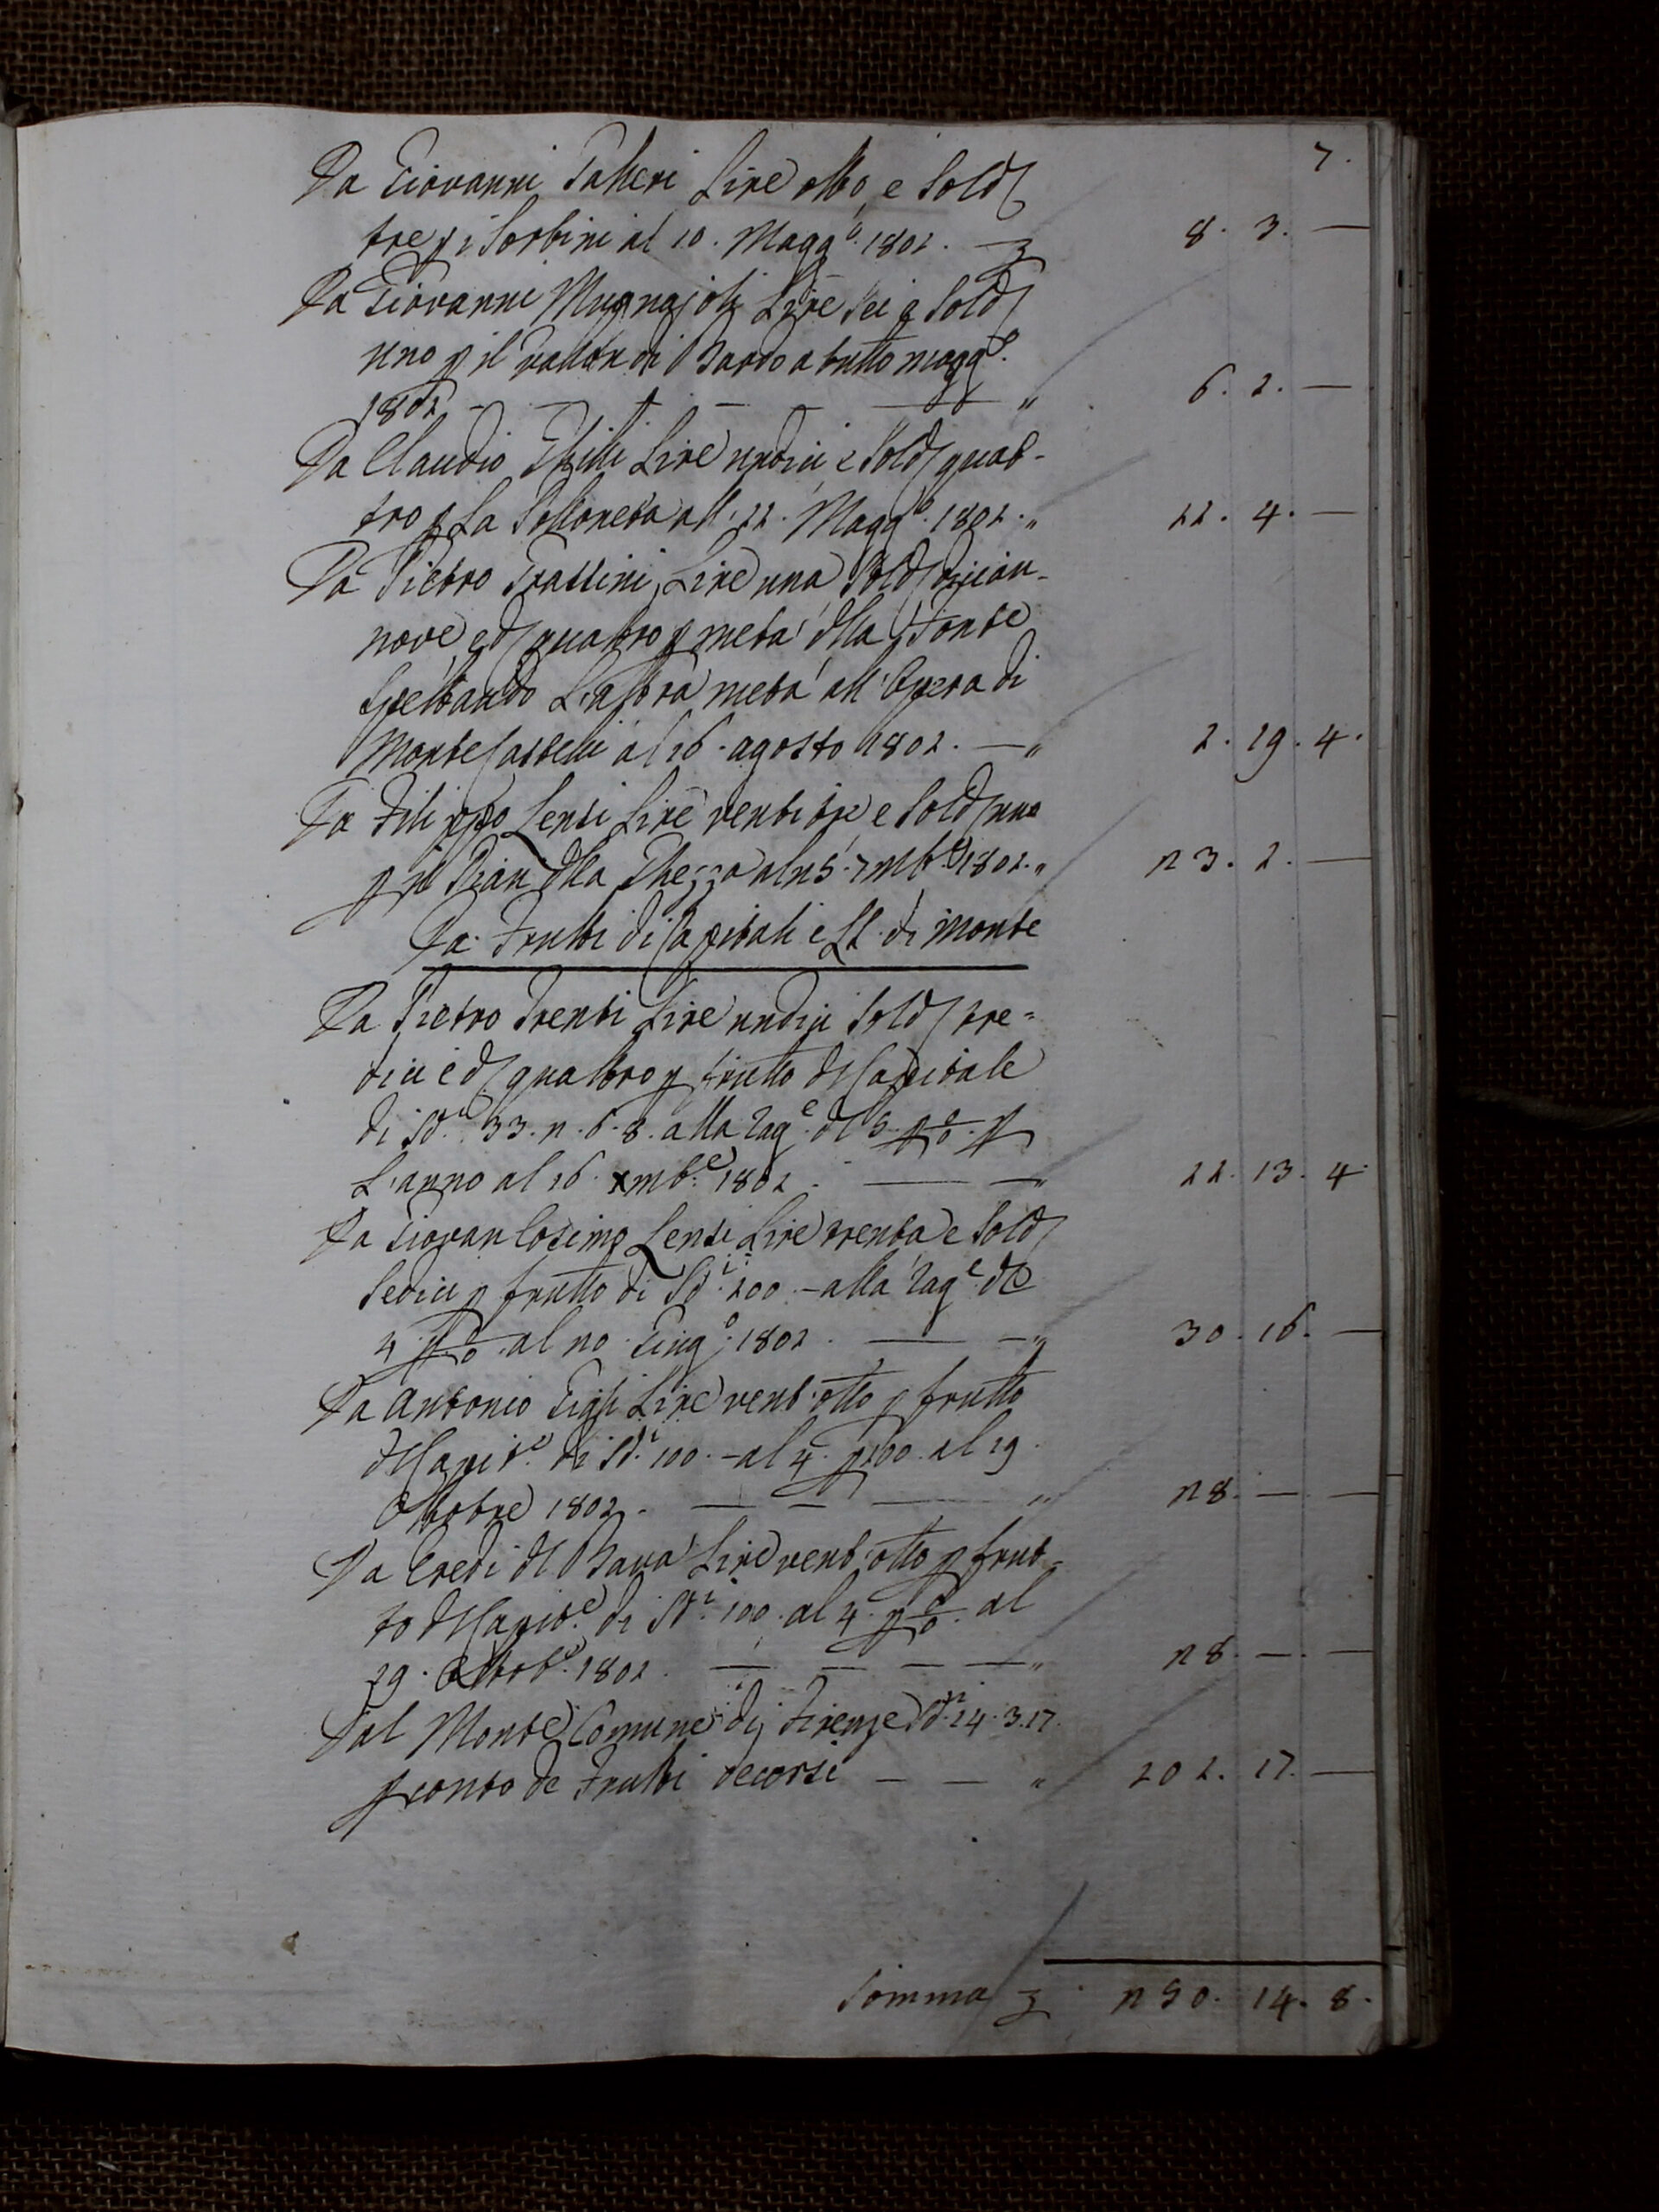 7.
Da Giovanni Salteri Lire otto, e Sold
tre p i Sorbini al 10. Magg.o 1802. — 8. 3. —
Da Giovanni Mugnajoli Lire Sei e Sold
uno p il di Bardo a tutto magg.o
1802 — — — — 6. 1. —
Da Claudio Lire undici e Sold quat-
tro p La all' 11. Magg.o 1802. " 11. 4. —
Da Pietro Frassini Lire una Sold dician-
nove, e d quattro p metà dlla Fonte
Spettando L'altra metà all' Opera di
Monte Castelli al 16. agosto 1802. — " 1. 19. 4.
Da Filippo Lensi Lire ventitre e Sold uno
p il Pian dlla al 25. 7mb.e 1802. " 23. 1. —
Da Frutti di Capitali e LL. di Monte
Da Pietro Trenti Lire undici Sold tre-
dici e d quattro p frutto dl Capitale
di Sd.i 33. 2. 6. 8. alla rag.e dl 5. p c/o. p
L'anno al 16. Xmb.e 1802. — — " 11. 13. 4.
Da Giovan Cosimo Lensi Lire trenta e Sold
Sedici p frutto di Sd.i 200. — alla rag.e de
4 p c/o. al 20. Giug.o 1802. — — " 30. 16. —
Da Antonio Gigli Lire vent'otto p frutto
dl Capit.e di Sd.i 100. — al 4. p 100. al 19.
Ottobre 1802. — — — " 28. — —
Da Eredi dl Bava Lire vent'otto p frut-
to dl Capit.e di Sd.i 100. al 4. p c/o. al
29. Ottob.e 1802. — — — — " 28. — —
Dal Monte Comune di Firenze Sd.i 14. 3. 17.
p conto de Frutti decorsi — — " 101. 17. —
Somma 250. 14. 8.